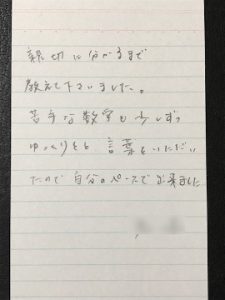 親切に分かるまで
教えて下さいました。
苦手な数学も少しずつ
ゆっくりとの言葉をいただい
たので自分のペースで出来ました